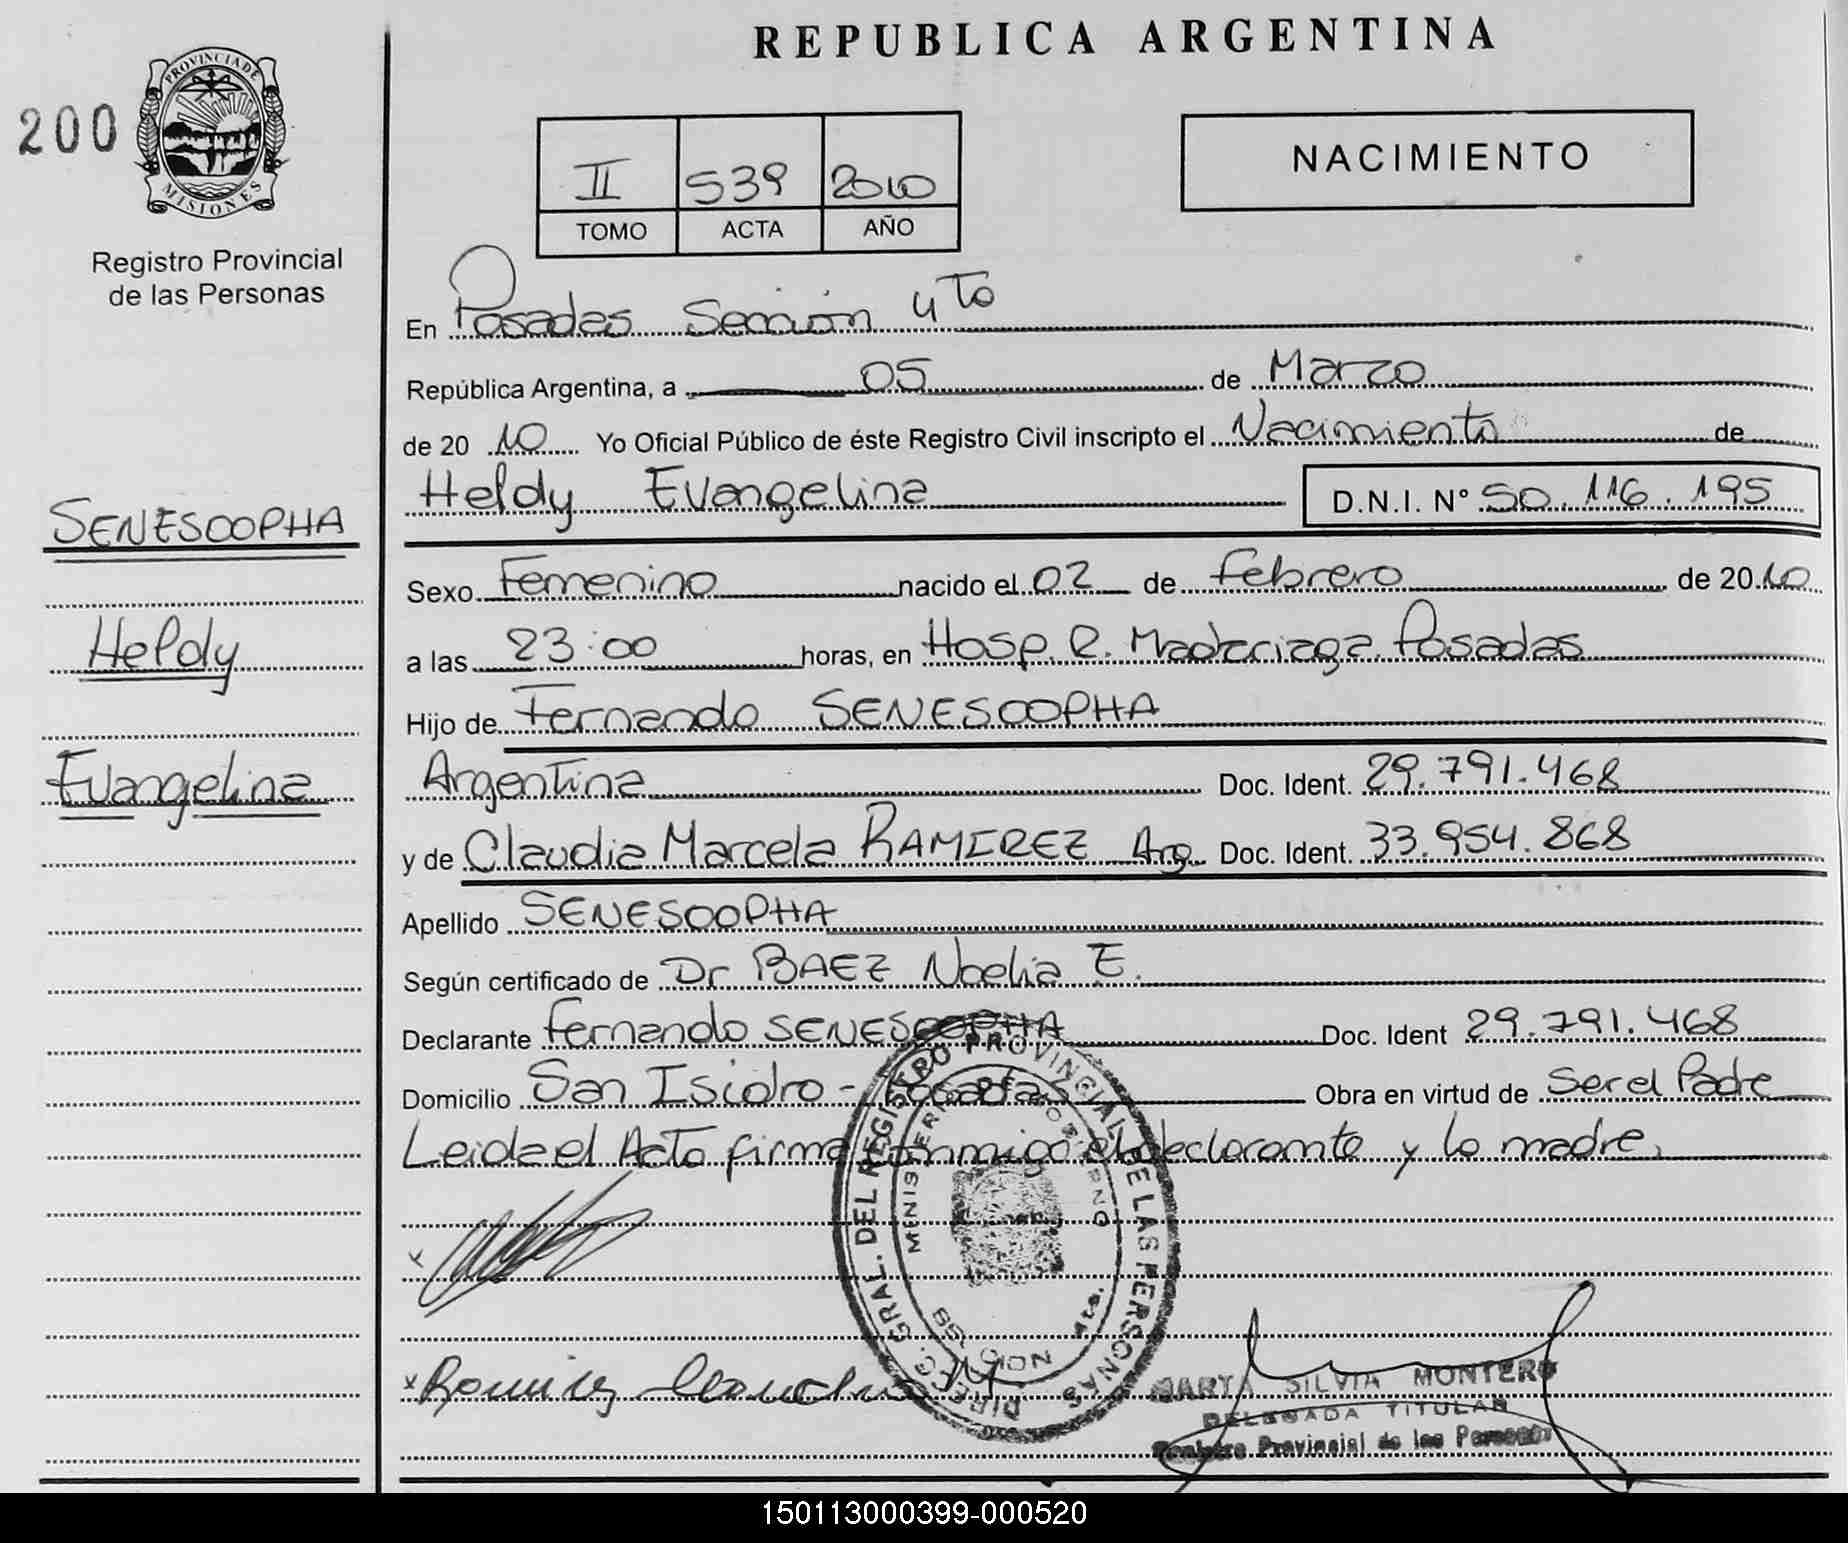 REPUBLICA ARGENTINA
200
PROVINCIA DE
MISIONES
Registro Provincial
de las Personas
II 539 2010
TOMO ACTA AÑO
NACIMIENTO
En Posadas Sección 4to
República Argentina, a 05 de Marzo
de 2010 Yo Oficial Público de éste Registro Civil inscripto el Nacimiento de
Heldy Evangelina D.N.I. Nº 50.116.195
SENESOOPHA
Heldy
Evangelina
Sexo Femenino nacido el 02 de Febrero de 2010
a las 23:00 horas, en Hosp. R. Madariaga. Posadas
Hijo de Fernando SENESOOPHA
Argentina Doc. Ident. 29.791.468
y de Claudia Marcela RAMIREZ Arg. Doc. Ident. 33.954.868
Apellido SENESOOPHA
Según certificado de Dr BAEZ Noelia E.
Declarante Fernando SENESOOPHA Doc. Ident 29.791.468
Domicilio San Isidro - Posadas Obra en virtud de Ser el Padre
Leida el Acta firma conmigo el declarante y la madre.
DIREC. GRAL. DEL REGISTRO PROVINCIAL DE LAS PERSONAS
MINISTERIO DE GOBIERNO
x Ramirez Claudia M
MARTA SILVIA MONTERO
DELEGADA TITULAR
Registro Provincial de las Personas
150113000399-000520